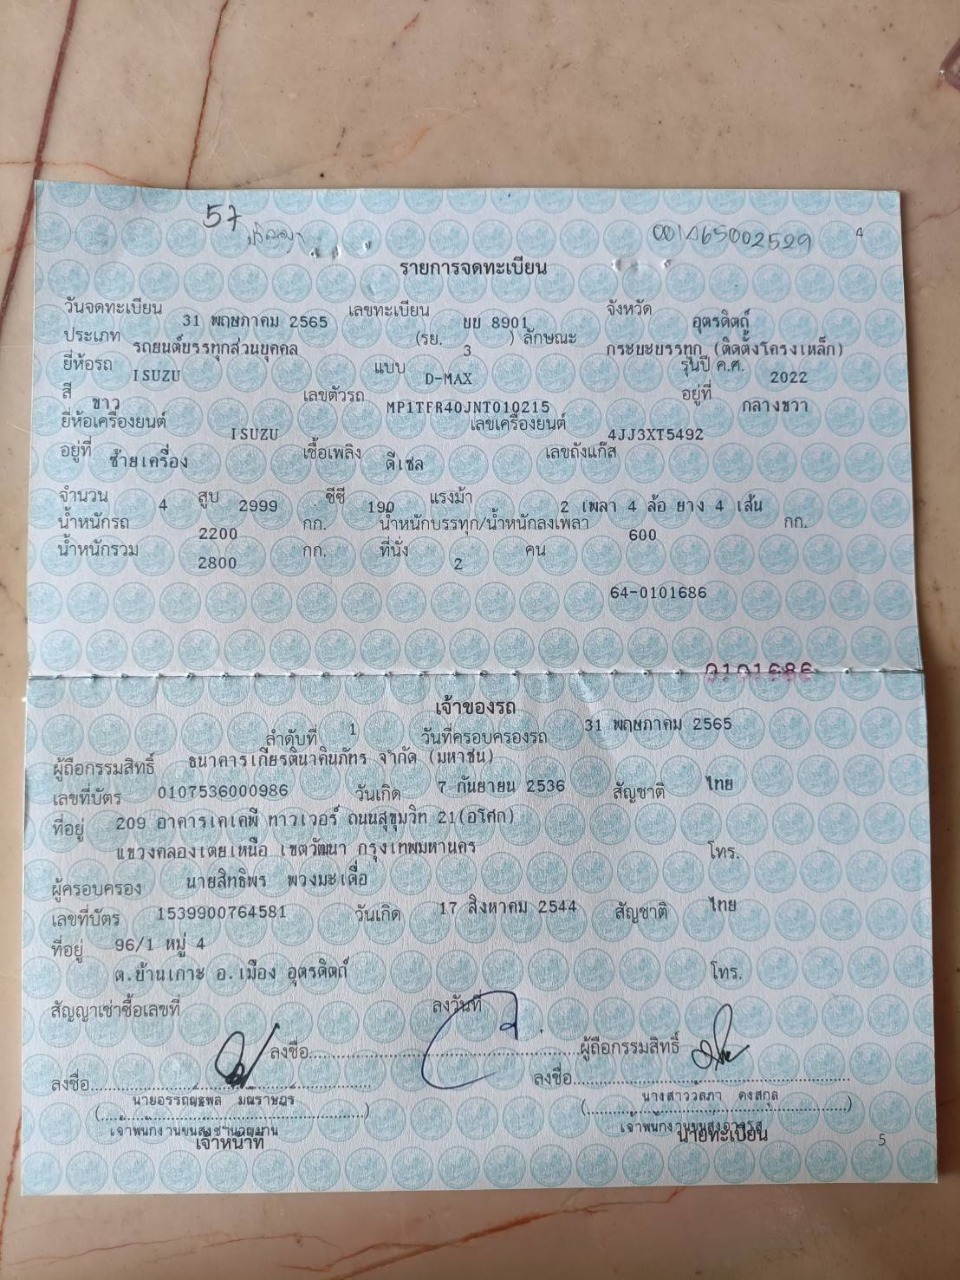 57
ปรัญญา
001465002529
4
รายการจดทะเบียน
วันจดทะเบียน 31 พฤษภาคม 2565 เลขทะเบียน บบ 8901 จังหวัด อุตรดิตถ์
ประเภท รถยนต์บรรทุกส่วนบุคคล (รย. 3 ) ลักษณะ กระบะบรรทุก (ติดตั้งโครงเหล็ก)
ยี่ห้อรถ ISUZU แบบ D-MAX รุ่นปี ค.ศ. 2022
สี ขาว เลขตัวรถ MP1TFR40JNT010215 อยู่ที่ กลางขวา
ยี่ห้อเครื่องยนต์ ISUZU เลขเครื่องยนต์ 4JJ3XT5492
อยู่ที่ ซ้ายเครื่อง เชื้อเพลิง ดีเซล เลขถังแก๊ส
จำนวน 4 สูบ 2999 ซีซี 190 แรงม้า 2 เพลา 4 ล้อ ยาง 4 เส้น
น้ำหนักรถ 2200 กก. น้ำหนักบรรทุก/น้ำหนักลงเพลา 600 กก.
น้ำหนักรวม 2800 กก. ที่นั่ง 2 คน
64-0101686
0101686
เจ้าของรถ
ลำดับที่ 1 วันที่ครอบครองรถ 31 พฤษภาคม 2565
ผู้ถือกรรมสิทธิ์ ธนาคารเกียรตินาคินภัทร จำกัด (มหาชน)
เลขที่บัตร 0107536000986 วันเกิด 7 กันยายน 2536 สัญชาติ ไทย
ที่อยู่ 209 อาคารเคเคพี ทาวเวอร์ ถนนสุขุมวิท 21(อโศก)
แขวงคลองเตยเหนือ เขตวัฒนา กรุงเทพมหานคร โทร.
ผู้ครอบครอง นายสิทธิพร พวงมะเดื่อ
เลขที่บัตร 1539900764581 วันเกิด 17 สิงหาคม 2544 สัญชาติ ไทย
ที่อยู่ 96/1 หมู่ 4
ต.บ้านเกาะ อ.เมือง อุตรดิตถ์ โทร.
สัญญาเช่าซื้อเลขที่ ลงวันที่
ลงชื่อ ผู้ถือกรรมสิทธิ์
ลงชื่อ ลงชื่อ
นายอรรถยุพล มณีราษฎร นางสาววัลภา คงสกุล
เจ้าพนักงานขนส่งชำนาญงาน เจ้าพนักงานขนส่งอาวุโส
เจ้าหน้าที่ นายทะเบียน
5